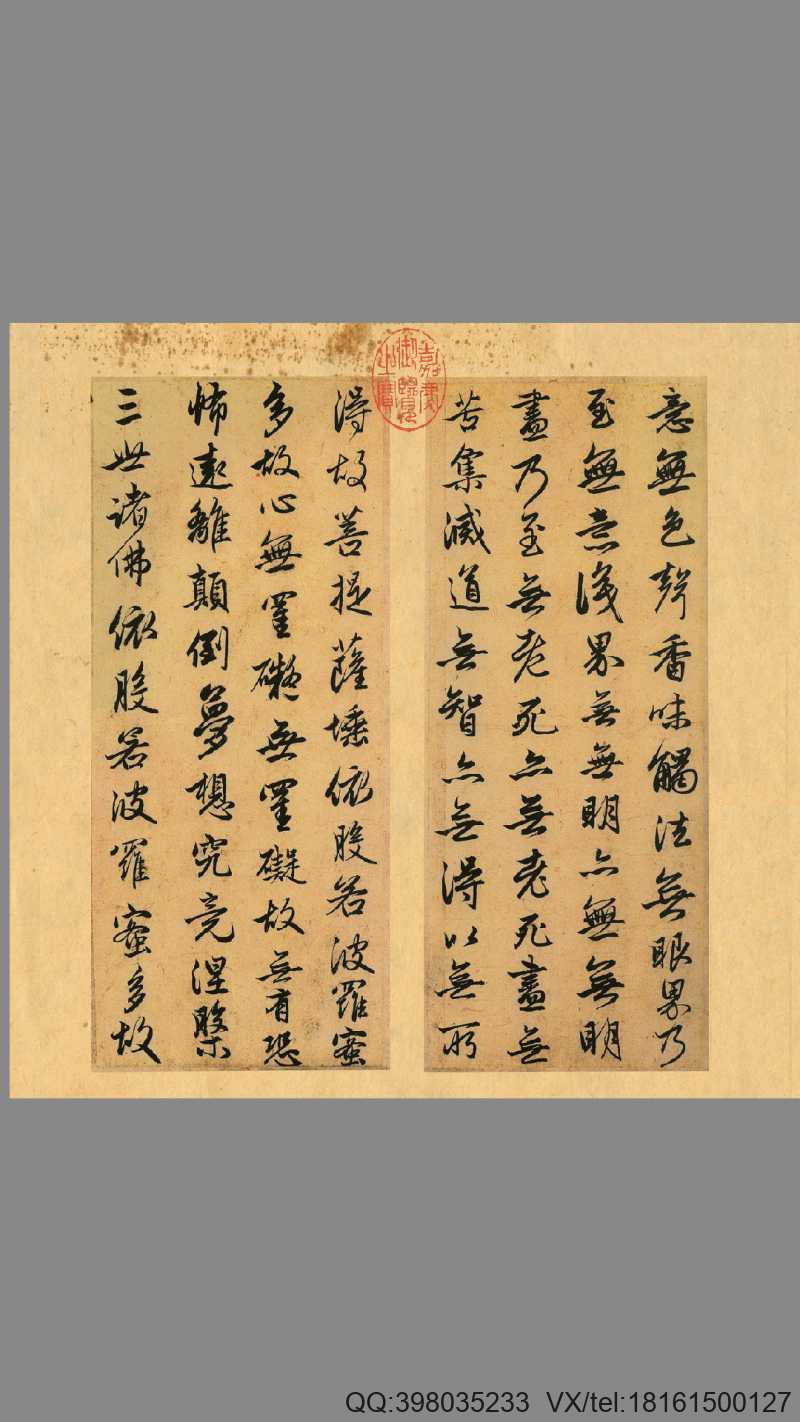 意無色聲香味觸法無眼界乃
至無意識界無無明亦無無明
盡乃至無老死亦無老死盡無
苦集滅道無智亦無得以無所
得故菩提薩埵依般若波羅蜜
多故心無罣礙無罣礙故無有恐
怖遠離顛倒夢想究竟涅槃
三世諸佛依般若波羅蜜多故
嘉慶御覽之寶
QQ:398035233 VX/tel:18161500127